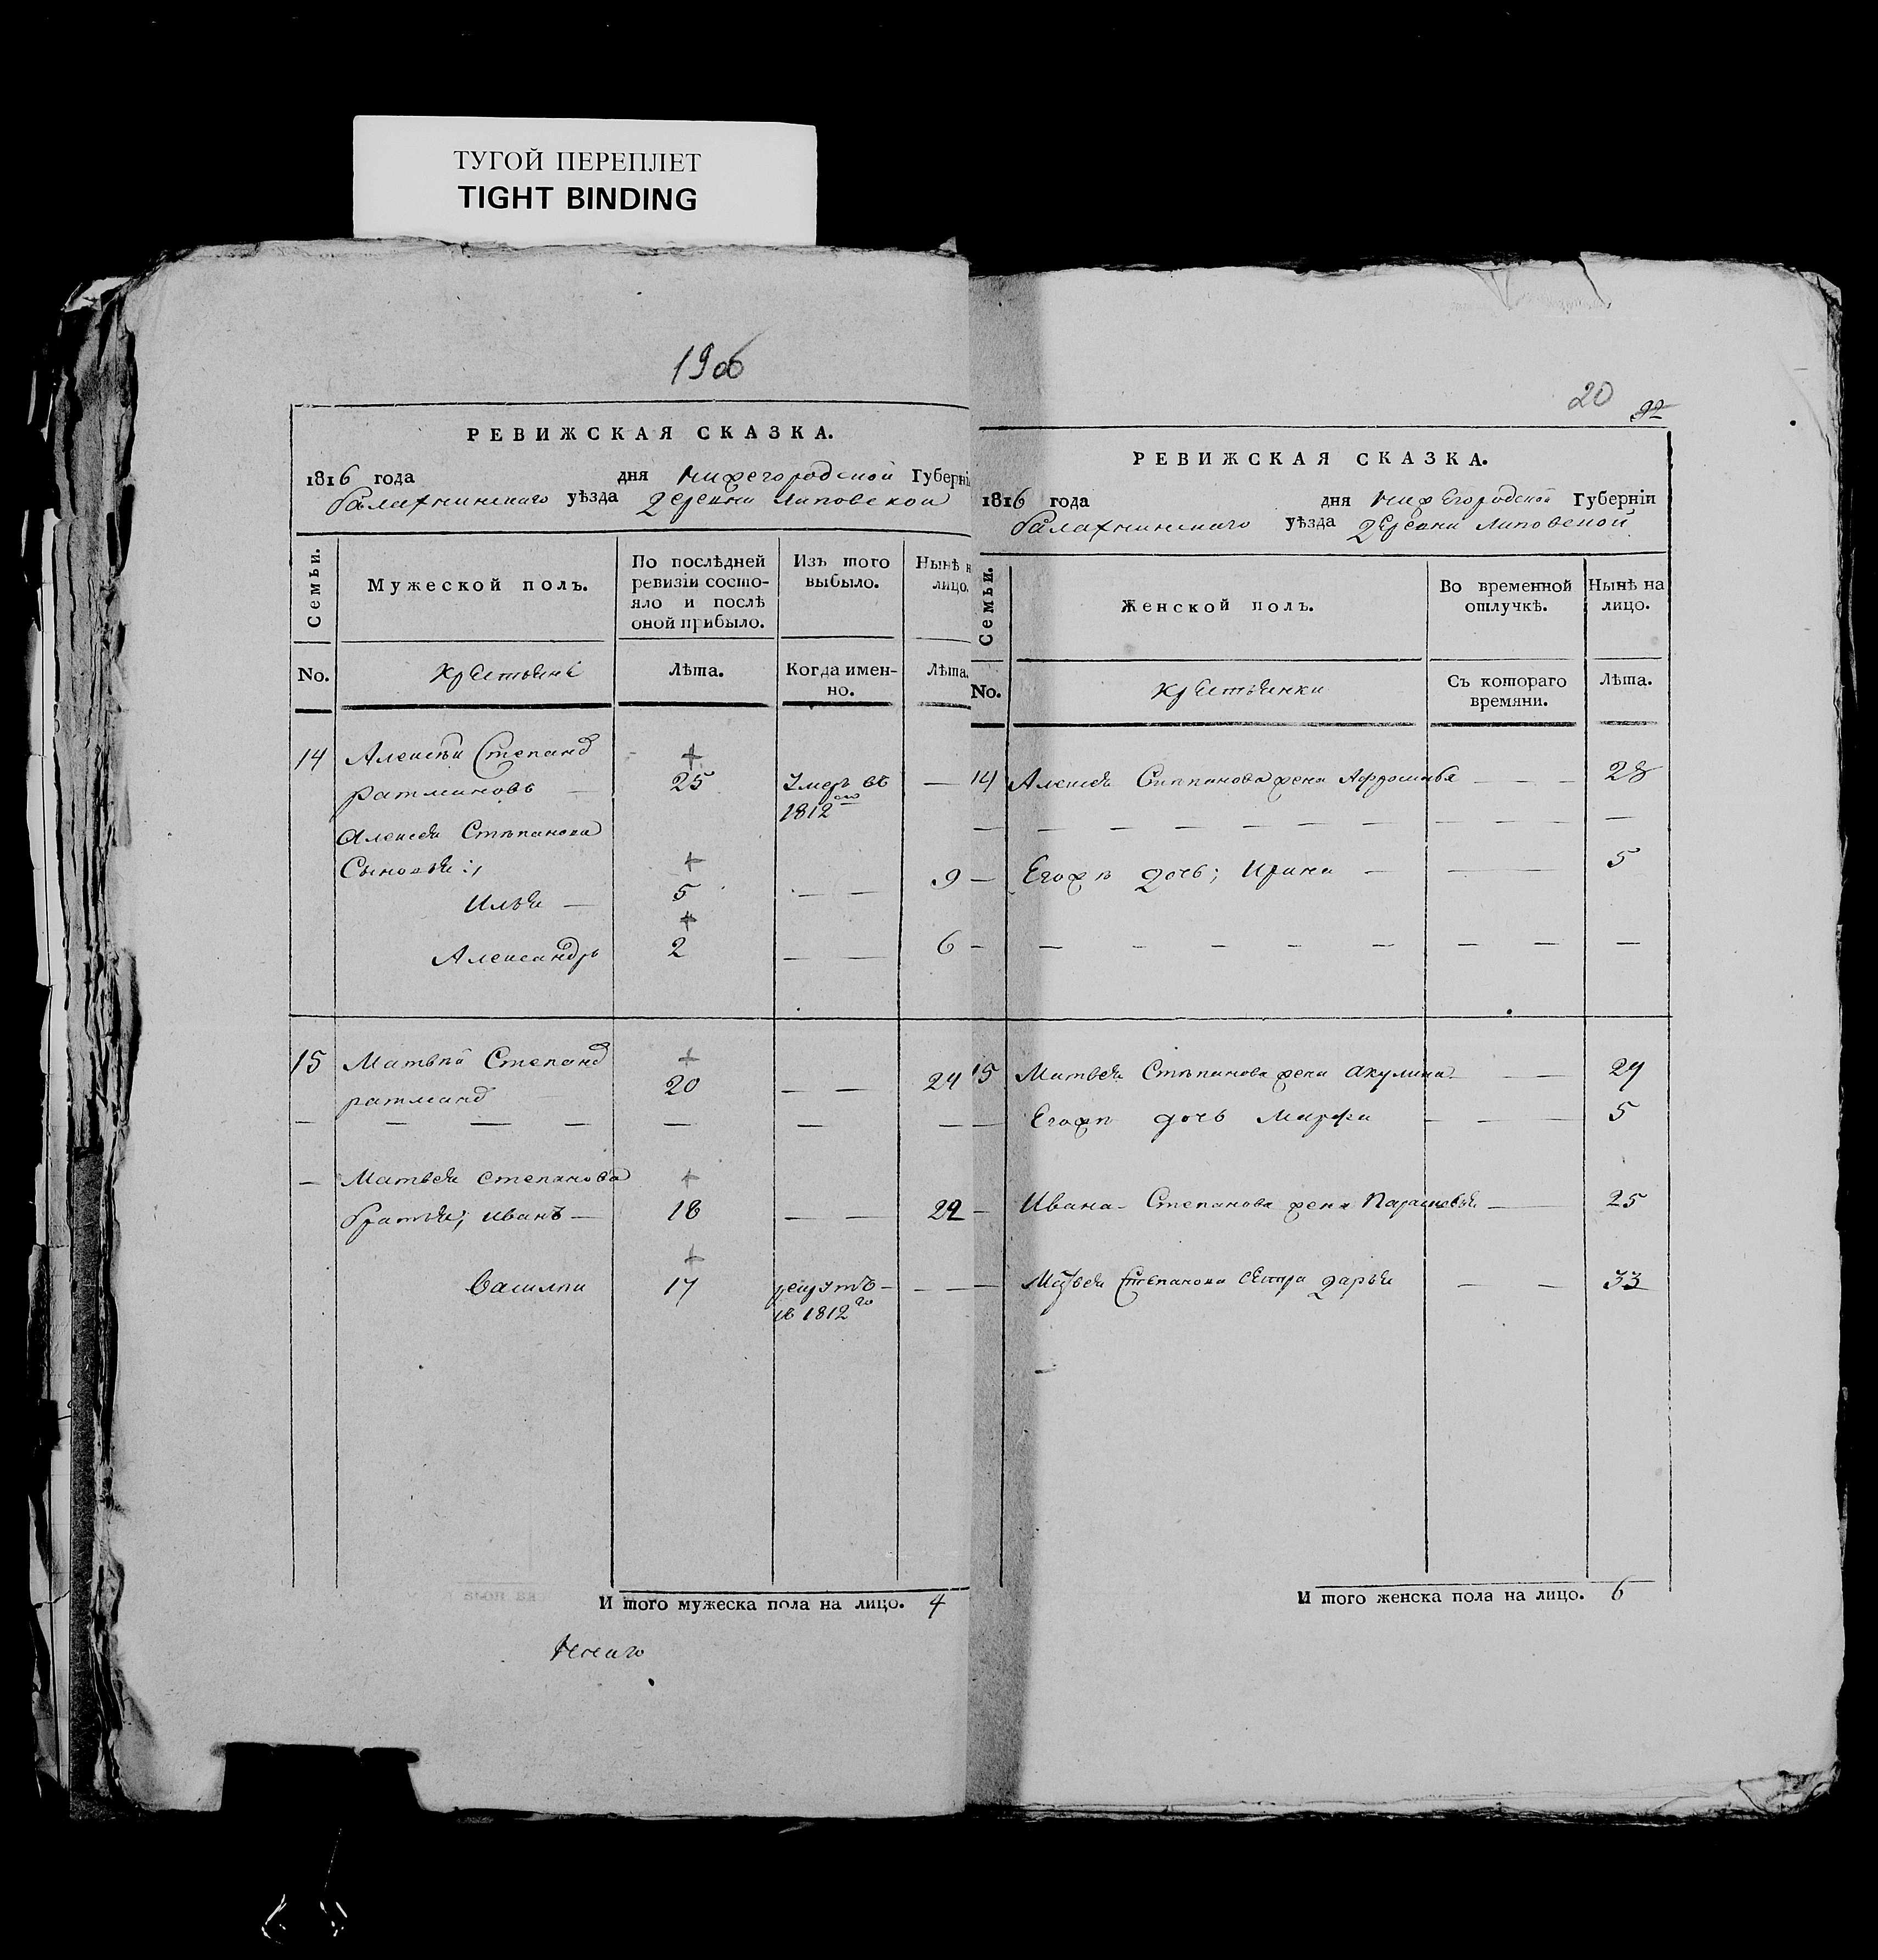 ТУГОЙ ПЕРЕПЛЕТ
TIGHT BINDING
19об
РЕВИЖСКАЯ СКАЗКА.
1816 года дня Нижегородской Губерніи
Балахнинскаго уѣзда деревни Липовской
Семьи. Мужеской полъ. По послѣдней ревизіи состояло и послѣ оной прибыло. Изъ того выбыло. Нынѣ на лицо.
No. Крестьяне Лѣта. Когда именно. Лѣта.
14 Алексѣй Степанъ +
Ратмановъ — 25 Умеръ въ —
1812го
Алексея Степанова
Сыновья: +
Илья — 5 — — 9
+
Александръ 2 — — 6
15 Матвѣй Степанъ +
20 — — 24
— — — — — — —
— Матвея Степанова +
братья; Иванъ — 18 — — 22
+
Василий 17 рекрутъ — —
въ 1812го
И того мужеска пола на лицо. 4
20
РЕВИЖСКАЯ СКАЗКА.
1816 года дня Нижегородской Губерніи
Балахнинскаго уѣзда деревни Липовской
Семьи. Женской полъ. Во временной отлучкѣ. Нынѣ на лицо.
No. Крестьянки Съ котораго времяни. Лѣта.
14 Алексея Степанова жена Афросинья — — — 28
— — — — — — — — — — —
— Егожъ дочь; Ирина — — — 5
— — — — — — — — —
15 Матвея Степанова жена Акулина — — 29
— Егожъ дочь Марфа — — — 5
— Ивана Степанова жена Парасковья — — 25
— Матвея Степанова сестра Дарья — — 33
И того женска пола на лицо. 6